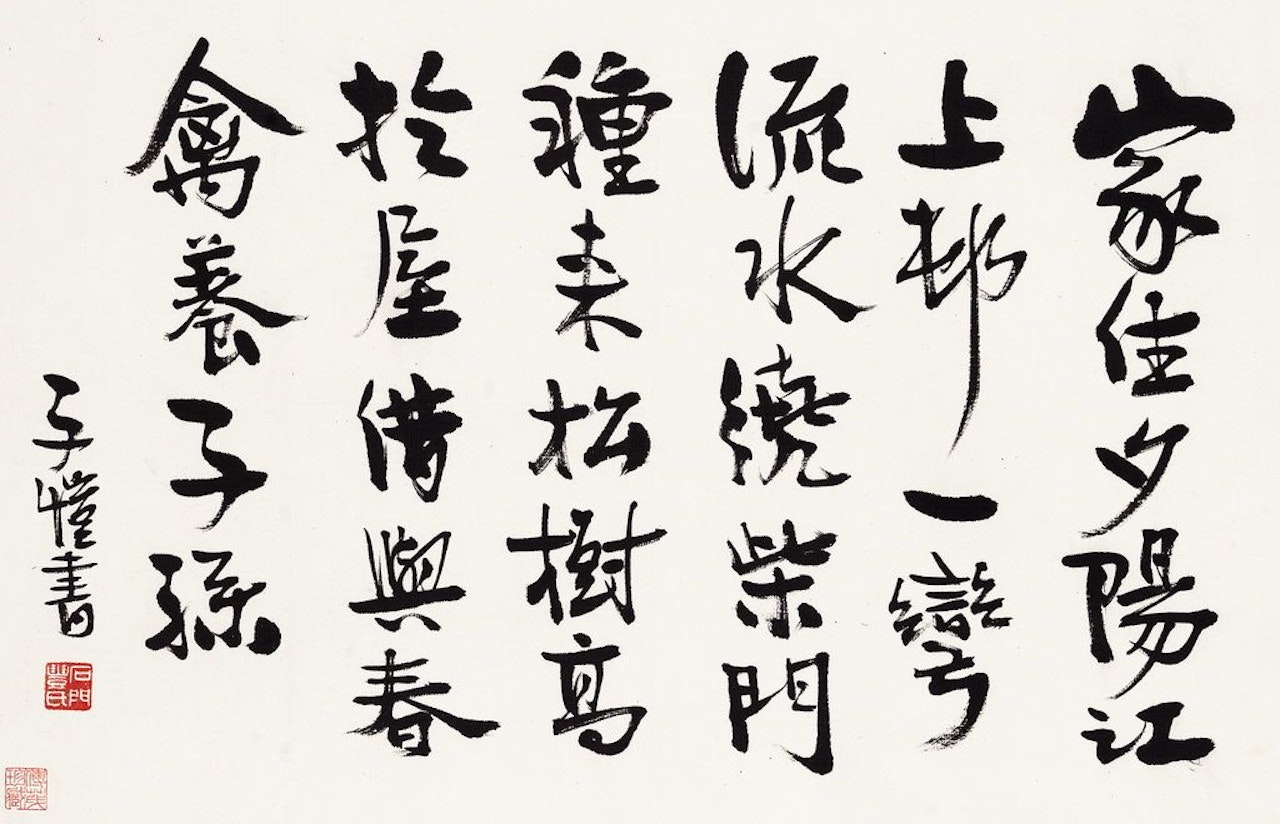 家住夕陽江
上邨一彎
流水繞柴門
種来松樹高
於屋借與春
禽養子孫
子愷書
石門豐氏